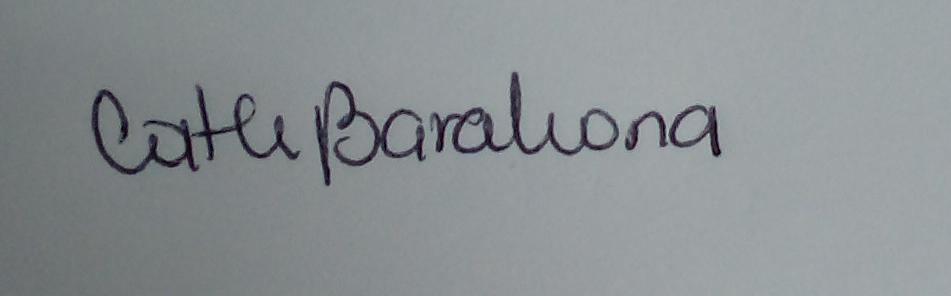 Cath Barahona